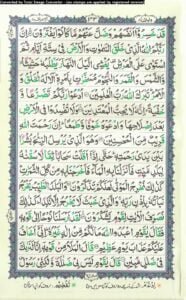 Converted by Total Image Converter - (no stamps are applied by registered version)
قَدْ خَسِرُوْٓا اَنْفُسَهُمْ وَضَلَّ عَنْهُمْ مَّا كَانُوْا يَفْتَرُوْنَ اِنَّ
رَبَّكُمُ اللّٰهُ الَّذِيْ خَلَقَ السَّمٰوٰتِ وَالْاَرْضَ فِيْ سِتَّةِ اَيَّامٍ ثُمَّ
اسْتَوٰى عَلَى الْعَرْشِ يُغْشِي الَّيْلَ النَّهَارَ يَطْلُبُهٗ حَثِيْثًا وَّ
الشَّمْسَ وَالْقَمَرَ وَالنُّجُوْمَ مُسَخَّرٰتٍ بِاَمْرِهٖ اَلَا لَهُ الْخَلْقُ وَ
الْاَمْرُ تَبٰرَكَ اللّٰهُ رَبُّ الْعٰلَمِيْنَ اُدْعُوْا رَبَّكُمْ تَضَرُّعًا وَّ
خُفْيَةً اِنَّهٗ لَا يُحِبُّ الْمُعْتَدِيْنَ وَلَا تُفْسِدُوْا فِي الْاَرْضِ
بَعْدَ اِصْلَاحِهَا وَادْعُوْهُ خَوْفًا وَّطَمَعًا اِنَّ رَحْمَتَ اللّٰهِ
قَرِيْبٌ مِّنَ الْمُحْسِنِيْنَ وَهُوَ الَّذِيْ يُرْسِلُ الرِّيٰحَ بُشْرًا
بَيْنَ يَدَيْ رَحْمَتِهٖ حَتّٰٓى اِذَآ اَقَلَّتْ سَحَابًا ثِقَالًا سُقْنٰهُ
لِبَلَدٍ مَّيِّتٍ فَاَنْزَلْنَا بِهِ الْمَآءَ فَاَخْرَجْنَا بِهٖ مِنْ كُلِّ الثَّمَرٰتِ
كَذٰلِكَ نُخْرِجُ الْمَوْتٰى لَعَلَّكُمْ تَذَكَّرُوْنَ وَالْبَلَدُ الطَّيِّبُ يَخْرُجُ
نَبَاتُهٗ بِاِذْنِ رَبِّهٖ وَالَّذِيْ خَبُثَ لَا يَخْرُجُ اِلَّا نَكِدًا كَذٰلِكَ
نُصَرِّفُ الْاٰيٰتِ لِقَوْمٍ يَّشْكُرُوْنَ لَقَدْ اَرْسَلْنَا نُوْحًا اِلٰى قَوْمِهٖ
فَقَالَ يٰقَوْمِ اعْبُدُوا اللّٰهَ مَا لَكُمْ مِّنْ اِلٰهٍ غَيْرُهٗ اِنِّيْٓ اَخَافُ
عَلَيْكُمْ عَذَابَ يَوْمٍ عَظِيْمٍ قَالَ الْمَلَاُ مِنْ قَوْمِهٖٓ اِنَّا لَنَرٰىكَ
فِيْ ضَلٰلٍ مُّبِيْنٍ قَالَ يٰقَوْمِ لَيْسَ بِيْ ضَلٰلَةٌ وَّلٰكِنِّيْ رَسُوْلٌ